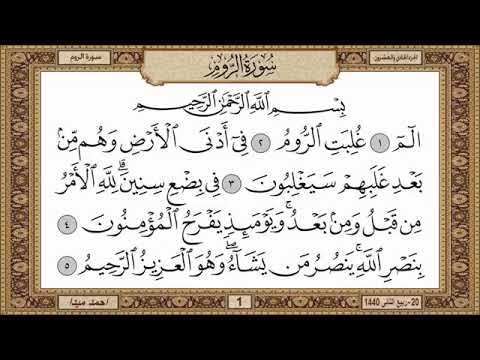 الجزء الحادي والعشرون
سورة الروم
سُورَةُ الرُّومِ
بِسْمِ اللَّهِ الرَّحْمَٰنِ الرَّحِيمِ
الٓمٓ ١ غُلِبَتِ الرُّومُ ٢ فِىٓ أَدْنَى الْأَرْضِ وَهُم مِّنۢ
بَعْدِ غَلَبِهِمْ سَيَغْلِبُونَ ٣ فِى بِضْعِ سِنِينَ ۗ لِلَّهِ الْأَمْرُ
مِن قَبْلُ وَمِنۢ بَعْدُ ۚ وَيَوْمَئِذٍ يَفْرَحُ الْمُؤْمِنُونَ ٤
بِنَصْرِ اللَّهِ ۚ يَنصُرُ مَن يَشَآءُ ۖ وَهُوَ الْعَزِيزُ الرَّحِيمُ ٥
20- ربيع الثاني 1440
1
احمد ميدا